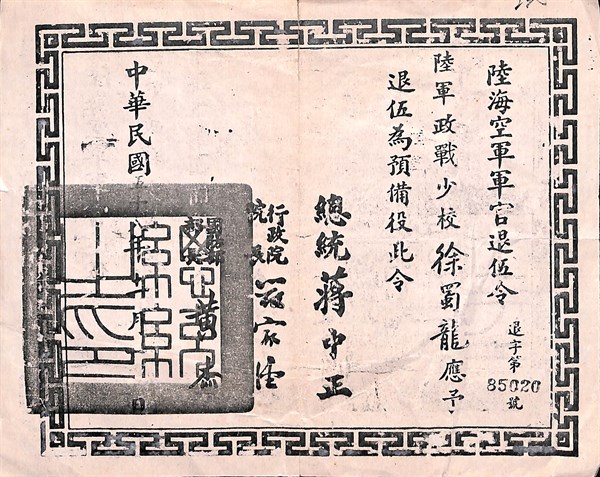 陸海空軍軍官退伍令
退字第85020號
陸軍政戰少校徐蜀龍應予
退伍為預備役此令
總統蔣中正
行政院院長嚴家淦
國防部部長黃杰
中華民國五十八年 月 日